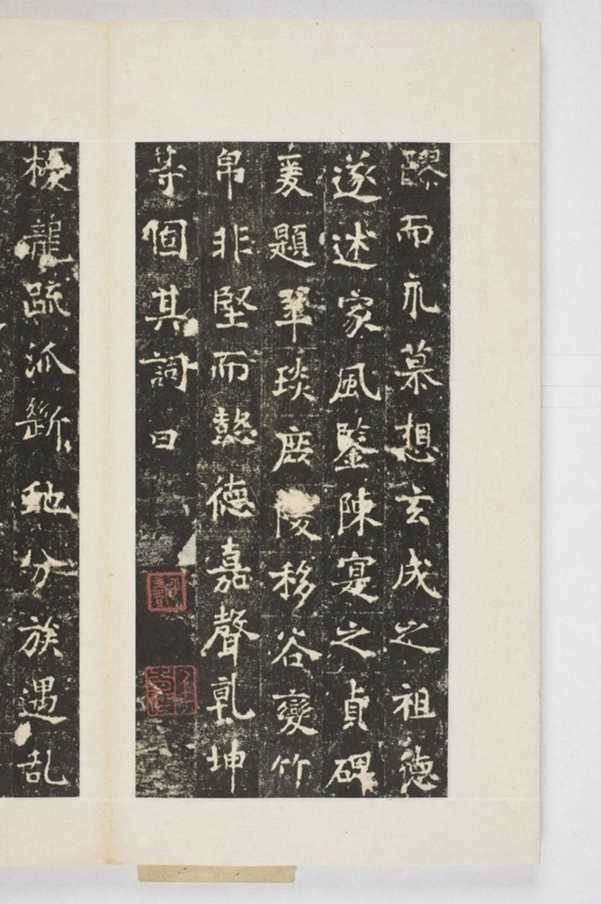 而永慕想玄成之祖德
遂述家風鑒陳寔之貞碑
爰題翠琰庶陵移谷變竹
帛非堅而懿德嘉聲乾坤
等固其詞曰
龍疏派斷地分族遇乱